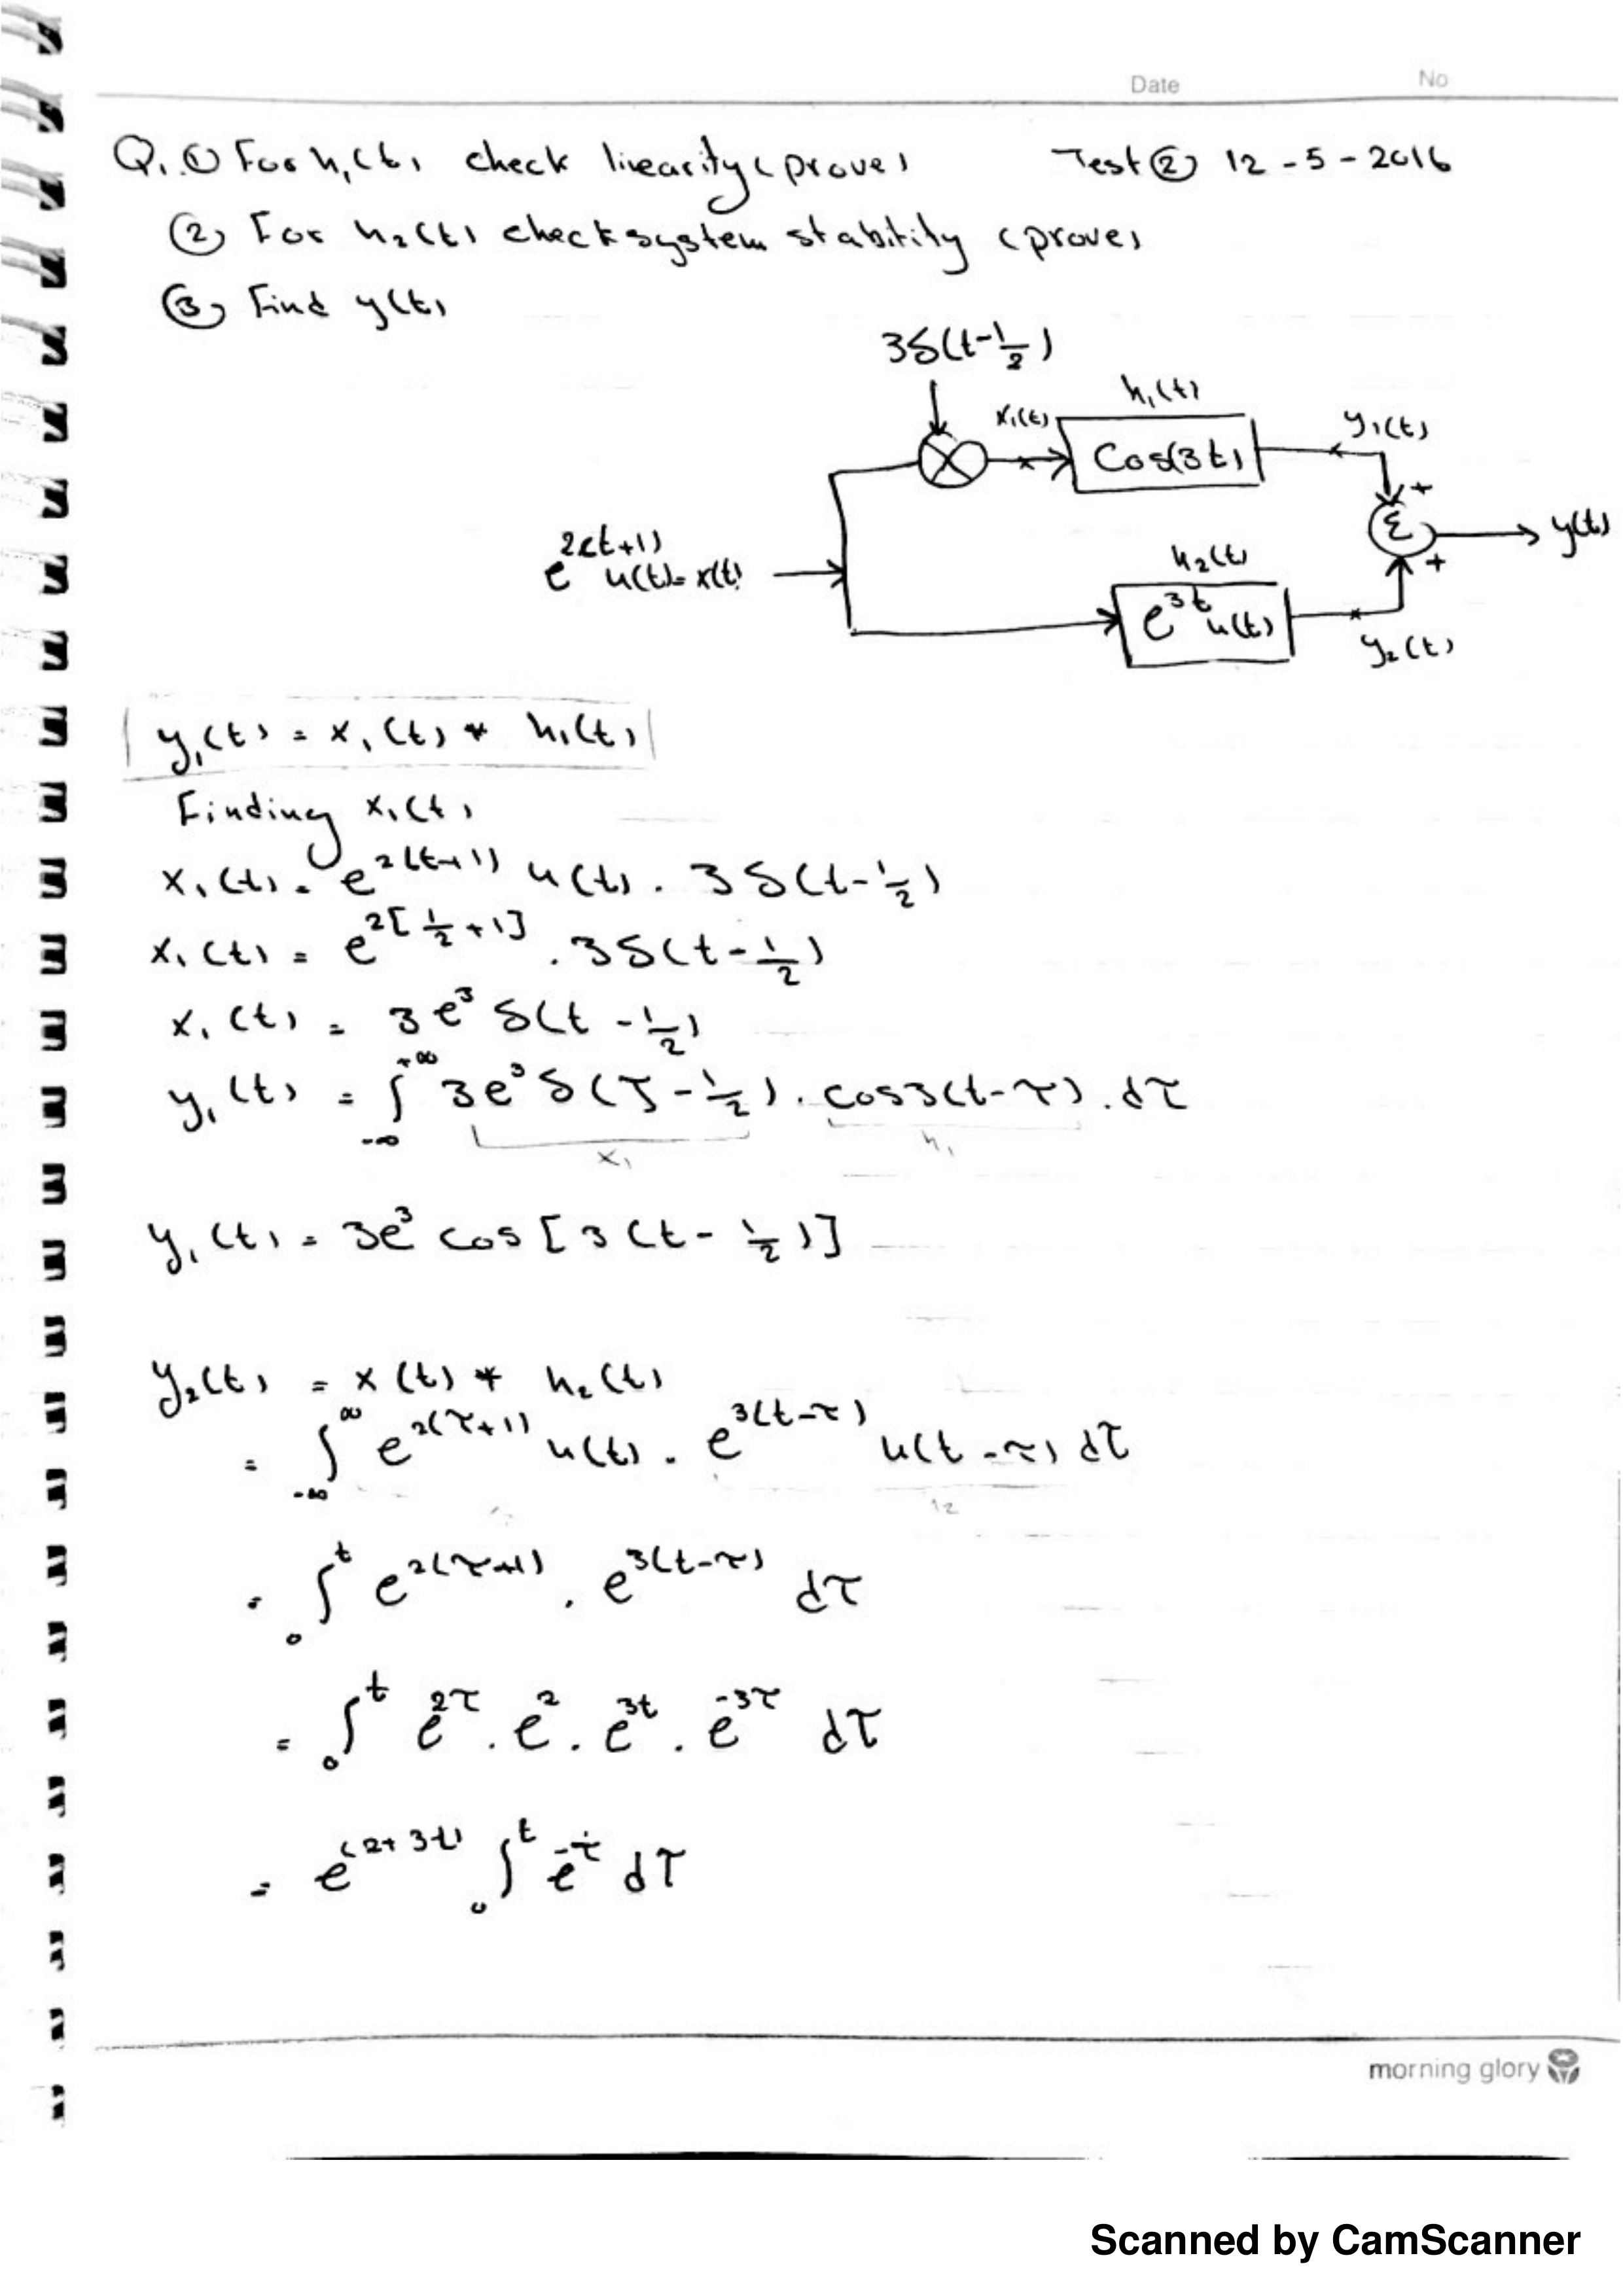 Date No
Q1. ① For h₁(t) check linearity (prove) Test ② 12-5-2016
② For h₂(t) check system stability (prove)
③ Find y(t)
3δ(t-1/2)
h₁(t)
x₁(t)
Cos(3t)
y₁(t)
+
Σ
y(t)
+
e^2(t+1) u(t)=x(t)
h₂(t)
e^3t u(t)
y₂(t)
y₁(t) = x₁(t) * h₁(t)
Finding x₁(t)
x₁(t) = e^2(t+1) u(t) . 3δ(t-1/2)
x₁(t) = e^2[1/2+1] . 3δ(t-1/2)
x₁(t) = 3e³ δ(t-1/2)
y₁(t) = ∫_-∞^+∞ 3e³ δ(τ-1/2) . cos3(t-τ) . dτ
x₁ h₁
y₁(t) = 3e³ cos[3(t-1/2)]
y₂(t) = x(t) * h₂(t)
= ∫_-∞^∞ e^2(τ+1) u(t) . e^3(t-τ) u(t-τ) dτ
= ∫_0^t e^2(τ+1) . e^3(t-τ) dτ
= ∫_0^t e^2τ . e^2 . e^3t . e^-3τ dτ
= e^(2+3t) ∫_0^t e^-τ dτ
morning glory
Scanned by CamScanner